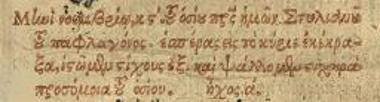 Μηνὶ νοεμβρίω, κϛ τοῦ ὁσίου πρς ἡμῶν. Στυλιανοῦ
τοῦ παφλαγόνος. ἑσπέρας εἰς τὸ κύριε ἐκέκρα
ξα, ἱστῶμεν στίχους ἕξ. καὶ ψάλλομεν στιχηρὰ
προσόμοια τοῦ ὁσίου. ἦχος. α.